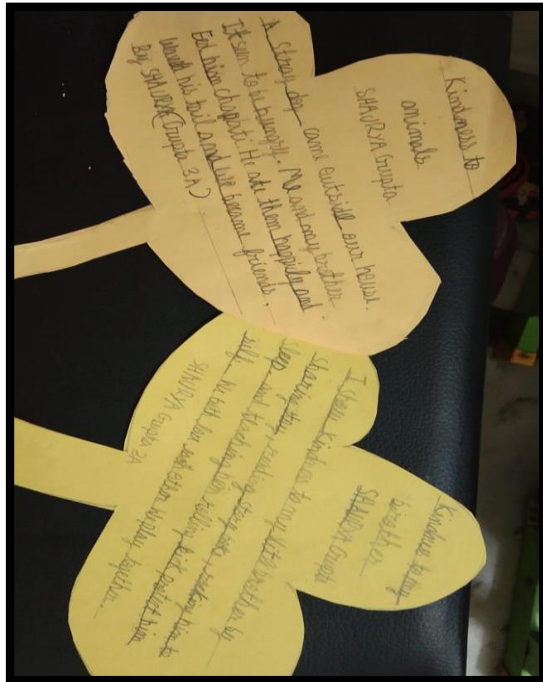 Kindness to
animals.
SHAURYA Gupta
A stray dog came outside our house.
It seen to be hungry. Me and my brother
Fed him chappti. He ate them happily and
waved his tail and we became friends.
By SHAURYA (Gupta 3A)
Kindness to my
brother
SHAURYA Gupta
I show kindness to my little brother by
sharing toys, reading story books, making him to
sleep and
milk. We both love each other to play together.
SHAURYA Gupta 3A